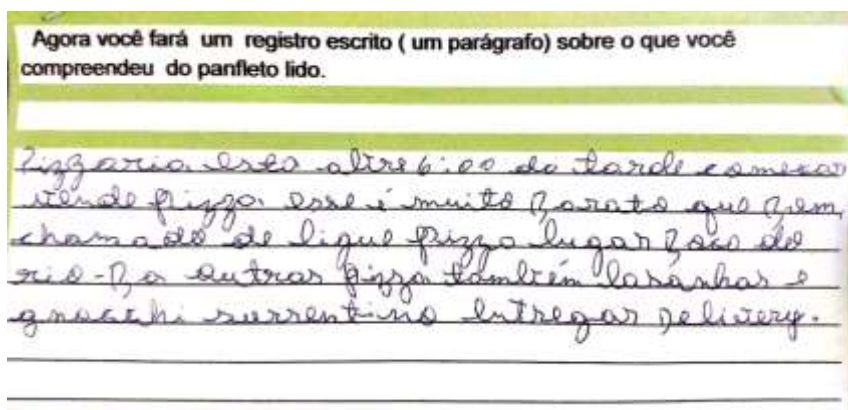 Agora você fará um registro escrito ( um parágrafo) sobre o que você
compreendeu do panfleto lido.
Pizzaria esta abre 6:00 da tarde começar
vende pizza esse é muito Barato que Bem,
chamado de ligue pizza lugar Boca do
rio-Ba outras pizza também lasanhas e
gnocchi surrentino entregar Delivery.